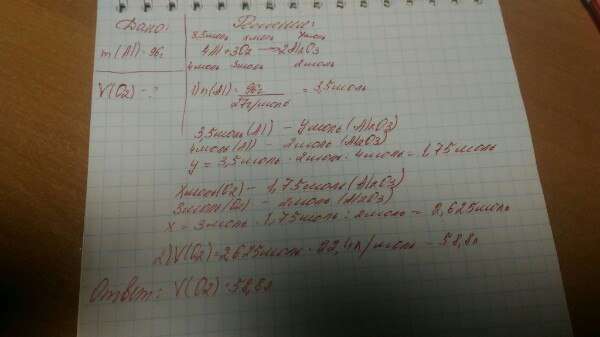 Дано:
m(Al)=96г
V(O2)=?
Решение:
3,5моль хмоль умоль
4Al+3O2 → 2Al2O3
4моль 3моль 2моль
1) n(Al)= 96г / 27г/моль = 3,5моль
3,5моль(Al) – умоль(Al2O3)
4моль(Al) – 2моль(Al2O3)
у = 3,5моль · 2моль : 4моль = 1,75моль
хмоль(O2) – 1,75моль(Al2O3)
3моль(O2) – 2моль(Al2O3)
х = 3моль · 1,75моль : 2моль = 2,625моль
2) V(O2)=2,625моль · 22,4л/моль = 58,8л
Ответ: V(O2)=58,8л